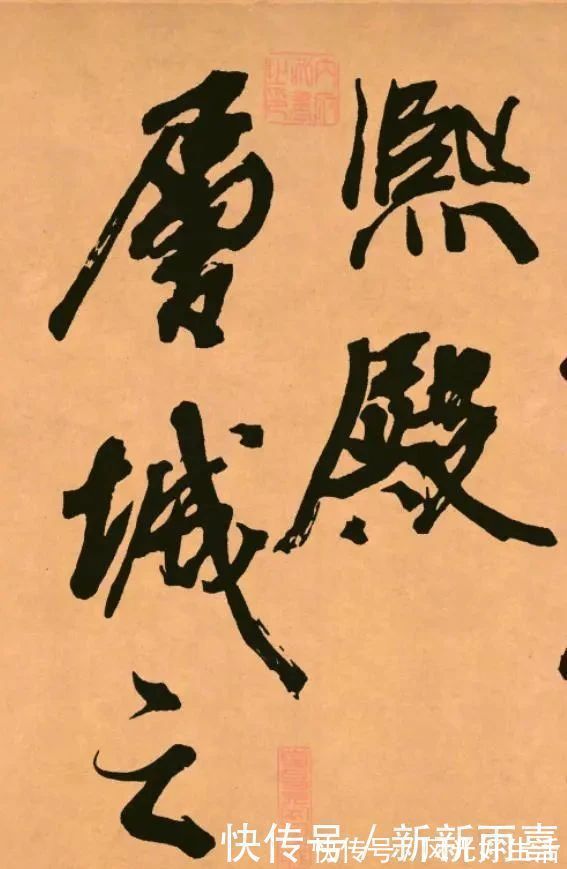 熙殿
層城之
快传号 / 新新雨喜